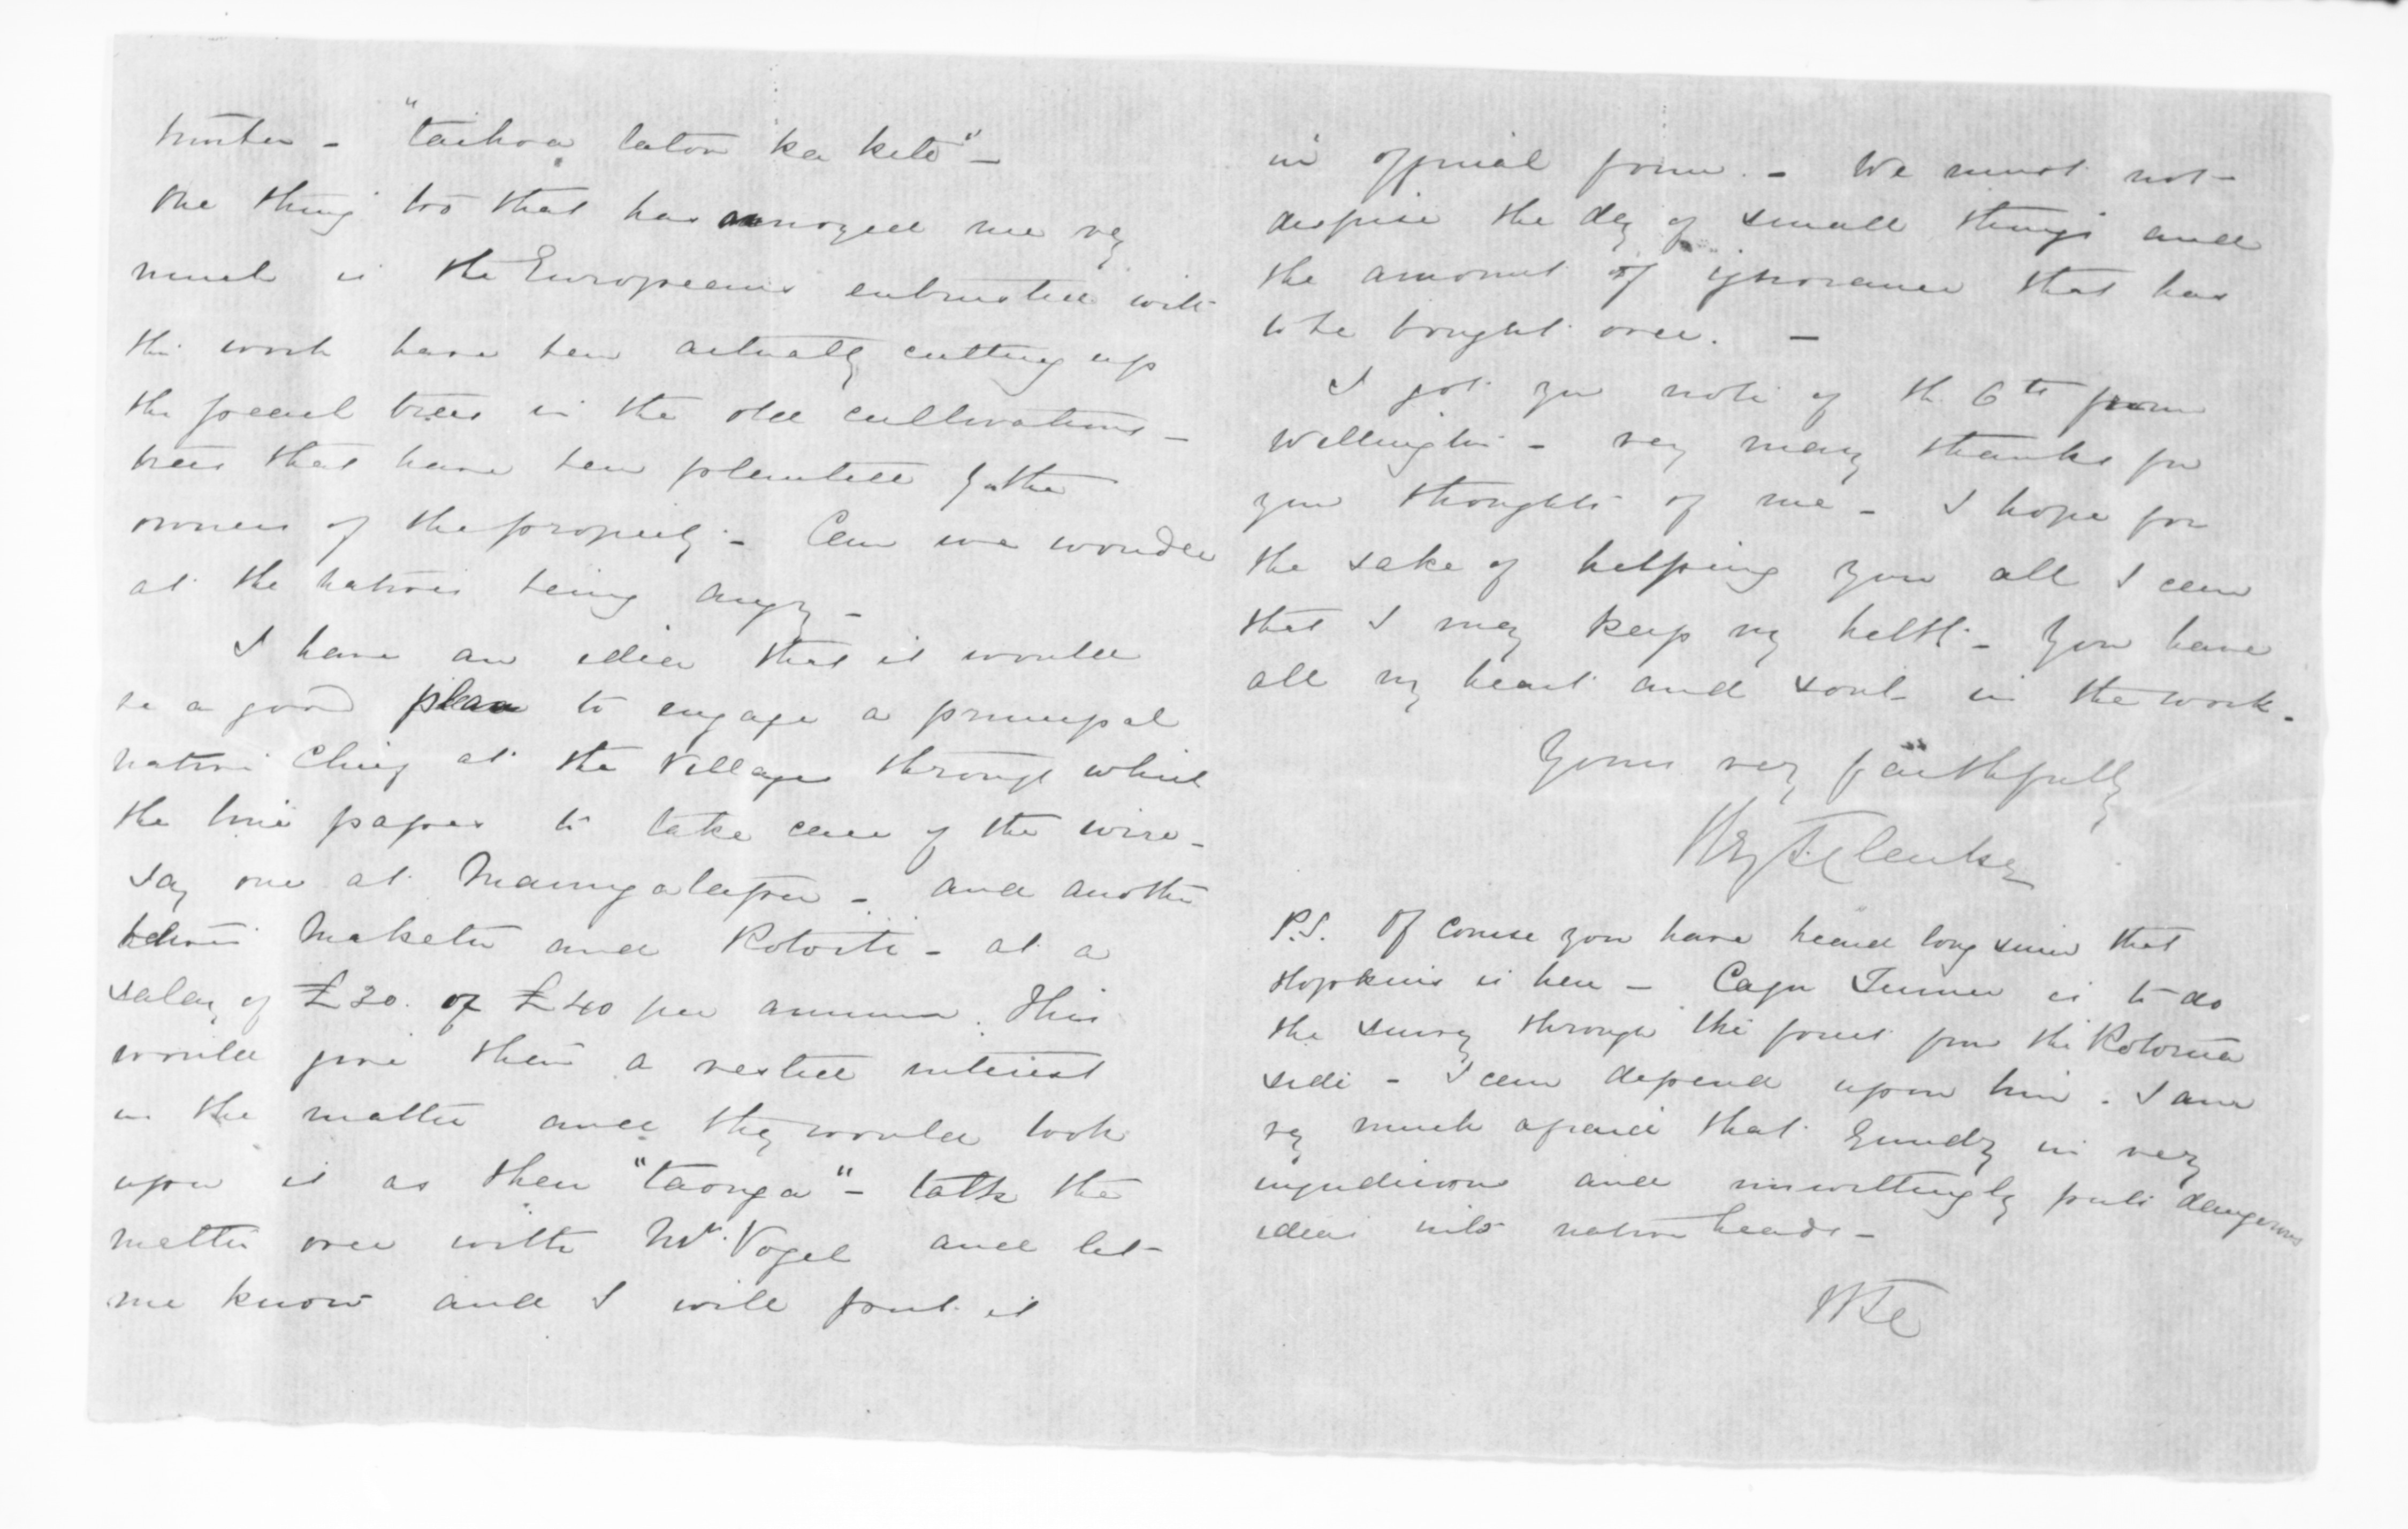 "taihoa tatou ka kite" -
One thing too that has annoyed me very
much is the Europeans entrusted with
this work have been actually cutting up
the peach trees in the old cultivations -
trees that have been planted by the
owners of the property - Can we wonder
at the natives being angry -
I have an idea that it would
be a good plan to engage a principal
native Chief at the Villages through which
the line passes to take care of the wire -
say one at Maungatapu - and another
between Maketu and Rotoiti - at a
salary of £30. or £40 per annum. This
would give them a vested interest
in the matter and they would look
upon it as their "taonga" - talk the
matter over with Mr. Vogel and let
me know and I will put it
in official form. - We must not
despise the day of small things and
the amount of ignorance that has
to be brought over. -
I got your note of the 6th from
Wellington - very many thanks for
your thoughts of me - I hope for
the sake of helping you all I can
that I may keep my helth - You have
all my heart and soul in the work -
Yours very faithfully
Hy T Clarke
P.S. Of course you have heard long since that
Hopkins is here - Capn Turner is to do
the survey through the forest from the Rotorua
side - I can depend upon him. I am
very much afraid that Gundry is very
injudicious and unwittingly puts dangerous
ideas into native heads -
HTC